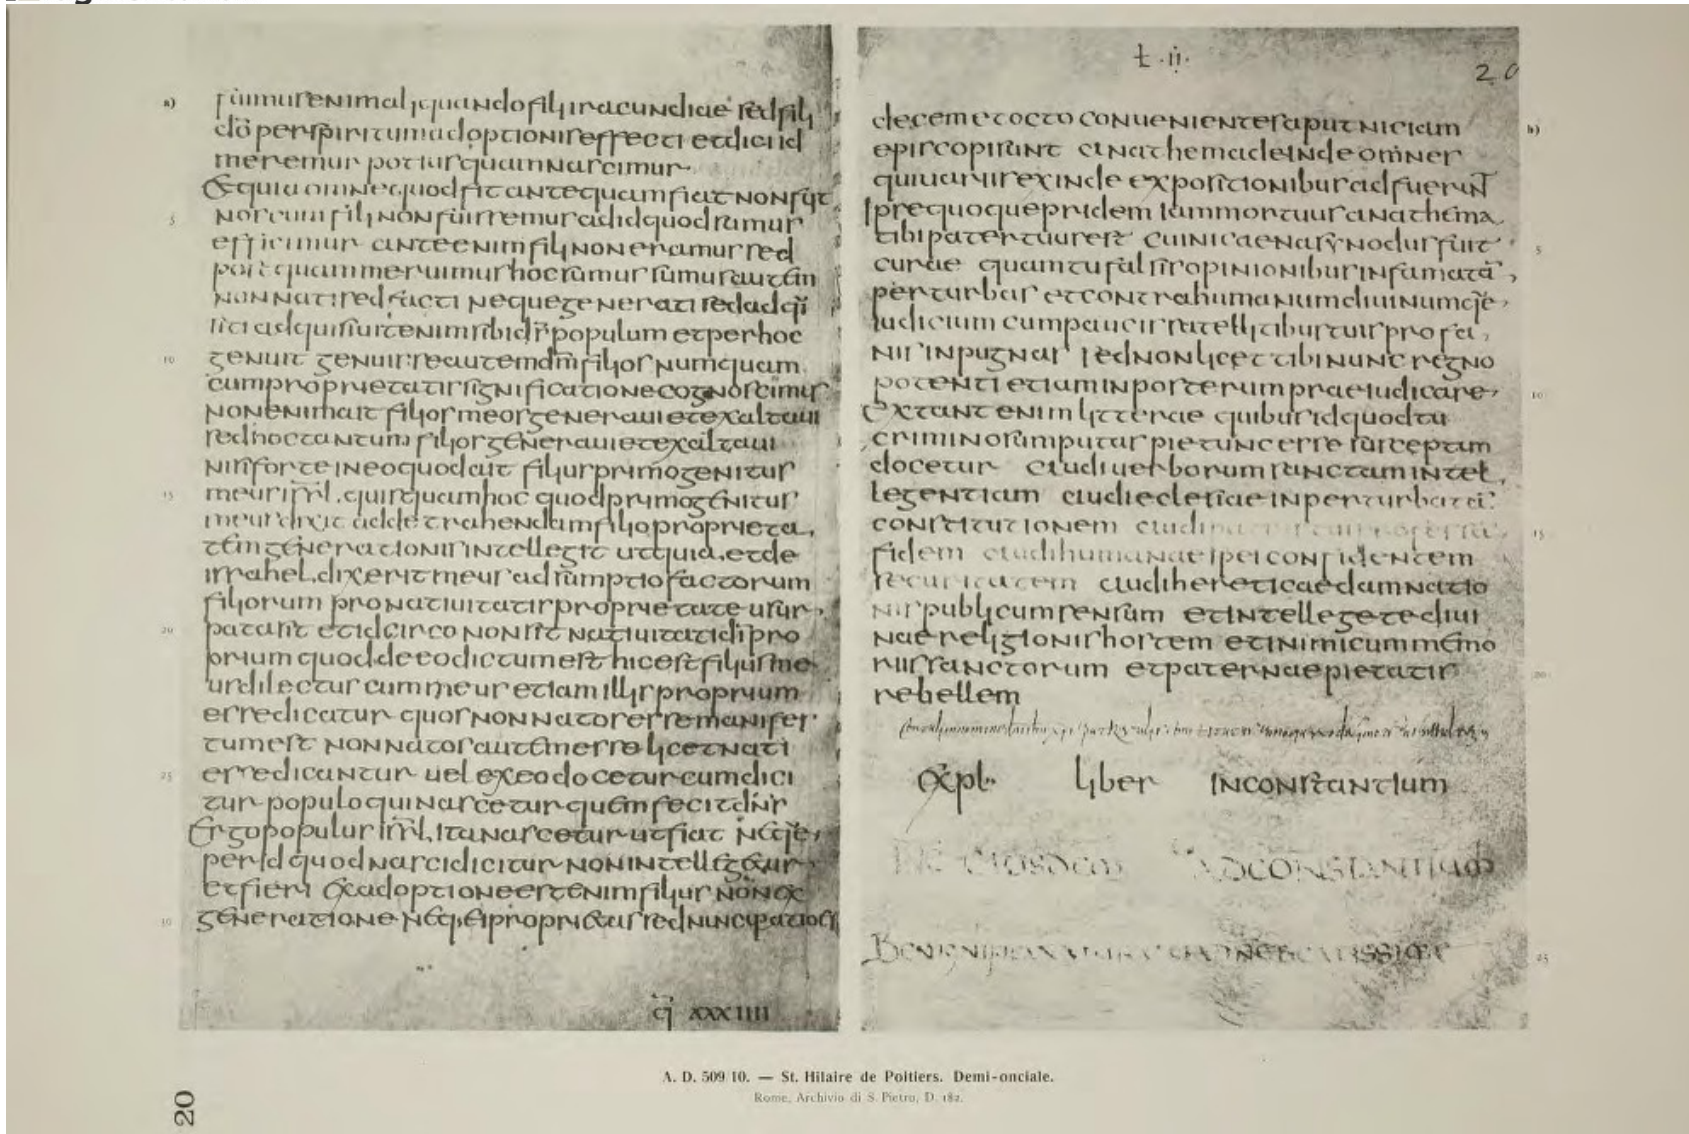 a)
fuimus enim aliquando filii iracundiae sed filii
dō per spiritum adoptionis effecti et dici id
meremur potius quam nascimur
Et quia omne quod fit antequam fiat non fuit
5 nos cum filii non fuissemus ad id quod sumus
efficimur ante enim filii non eramus sed
postquam meruimus hoc sumus sumus autem
non nati sed facti neque generati sed adqui
siti adquisiuit enim sibi ds̄ populum et per hoc
10 genuit genuisse autem dn̄m filios numquam
cum proprietatis significatione cognoscimus
non enim ait filios meos generaui et exaltaui
sed hoc tantum filios generaui et exaltaui
nisi forte in eo quod ait filius primogenitus
15 meus isrl̄. quisquam hoc quod primogenitus
meus dixit ad detrahendam filio proprieta
tem generationis intellegit ut quia et de
israhel dixerit meus adsumptio factorum
filiorum pro natiuitatis proprietate usur
20 et idcirco non sit natiuitati di pro
prium quod de eo dictum est hic est filius me
us dilectus cum meus etiam illis proprium
esse dicatur quos non natos esse manifes
tum est non natos autem esse licet nati
25 esse dicantur uel ex eo docetur cum dici
tur populo qui nascetur quem fecit dn̄s
Ergo populus isrl̄. ita nascetur ut fiat neq̄e
per id quod nasci dicitur non intellegetur
et fieri ex adoptione est enim filius non ex
30 generatione neq; ei proprietas sed nuncupatio est
q̄ XXXIIII
ł . ii .
20
b)
decem et octo conuenientes aput niciam
episcopi sunt anathema deinde omnes
qui uariis exinde expositionibus adfuerunt
Ipse quoque pridem iam mortuus anathema
5 tibi pater tuus est cui nicaena synodus fuit
curae quam tu falsis opinionibus infamatā
perturbas et contra humanum diuinumq̄e
iudicium cum paucis satellitibus tuis profa
nis inpugnas sed non licet tibi nunc regno
10 potenti etiam in posterum praeiudicare
Extant enim litterae quibus id quod tu
criminosum putas pie tunc esse susceptum
docetur audi uerborum sanctam intel
legentiam audi eclesiae inperturbatā
15 constitutionem audi
fidem audi humanae spei confidentem
securitatem audi hereticae damnatio
nis publicum sensum et intellege te diui
nae religionis hostem et inimicum memo
20 riis sanctorum et paternae pietatis
rebellem
Expl· liber in constantium
AD CONSTANTIUM
25
A. D. 509/10. — St. Hilaire de Poitiers. Demi-onciale.
Rome, Archivio di S. Pietro, D. 182.
20